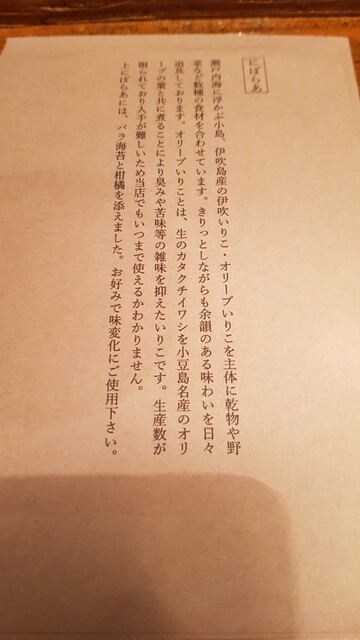 にぼらあ
瀬戸内海に浮かぶ小島、伊吹島産の伊吹いりこ・オリーブいりこを主体に乾物や野
菜など数種の食材を合わせています。きりっとしながらも余韻のある味わいを日々
追及しております。オリーブいりことは、生のカタクチイワシを小豆島名産のオリ
ーブの葉と共に煮ることにより臭みや苦味等の雑味を抑えたいりこです。生産数が
限られており入手が難しいため当店でもいつまで使えるかわかりません。
上にぼらあには、バラ海苔と柑橘を添えました。お好みで味変化にご使用下さい。